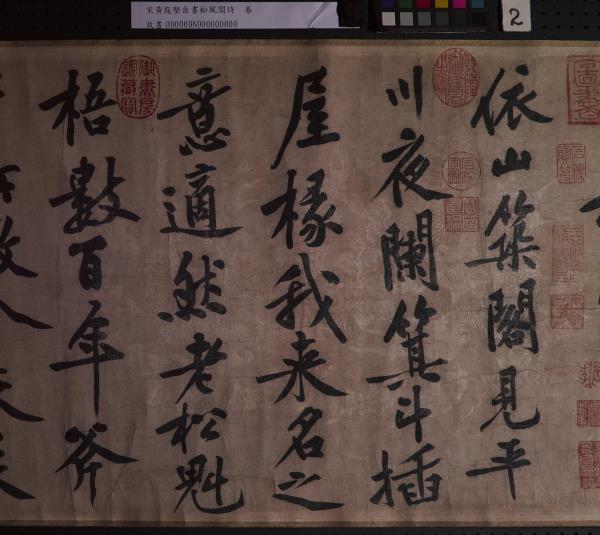 宋黃庭堅自書松風閣詩 卷
故書000069N000000000
2
依山築閣見平
川夜闌箕斗插
屋椽我来名之
意適然老松魁
梧數百年斧